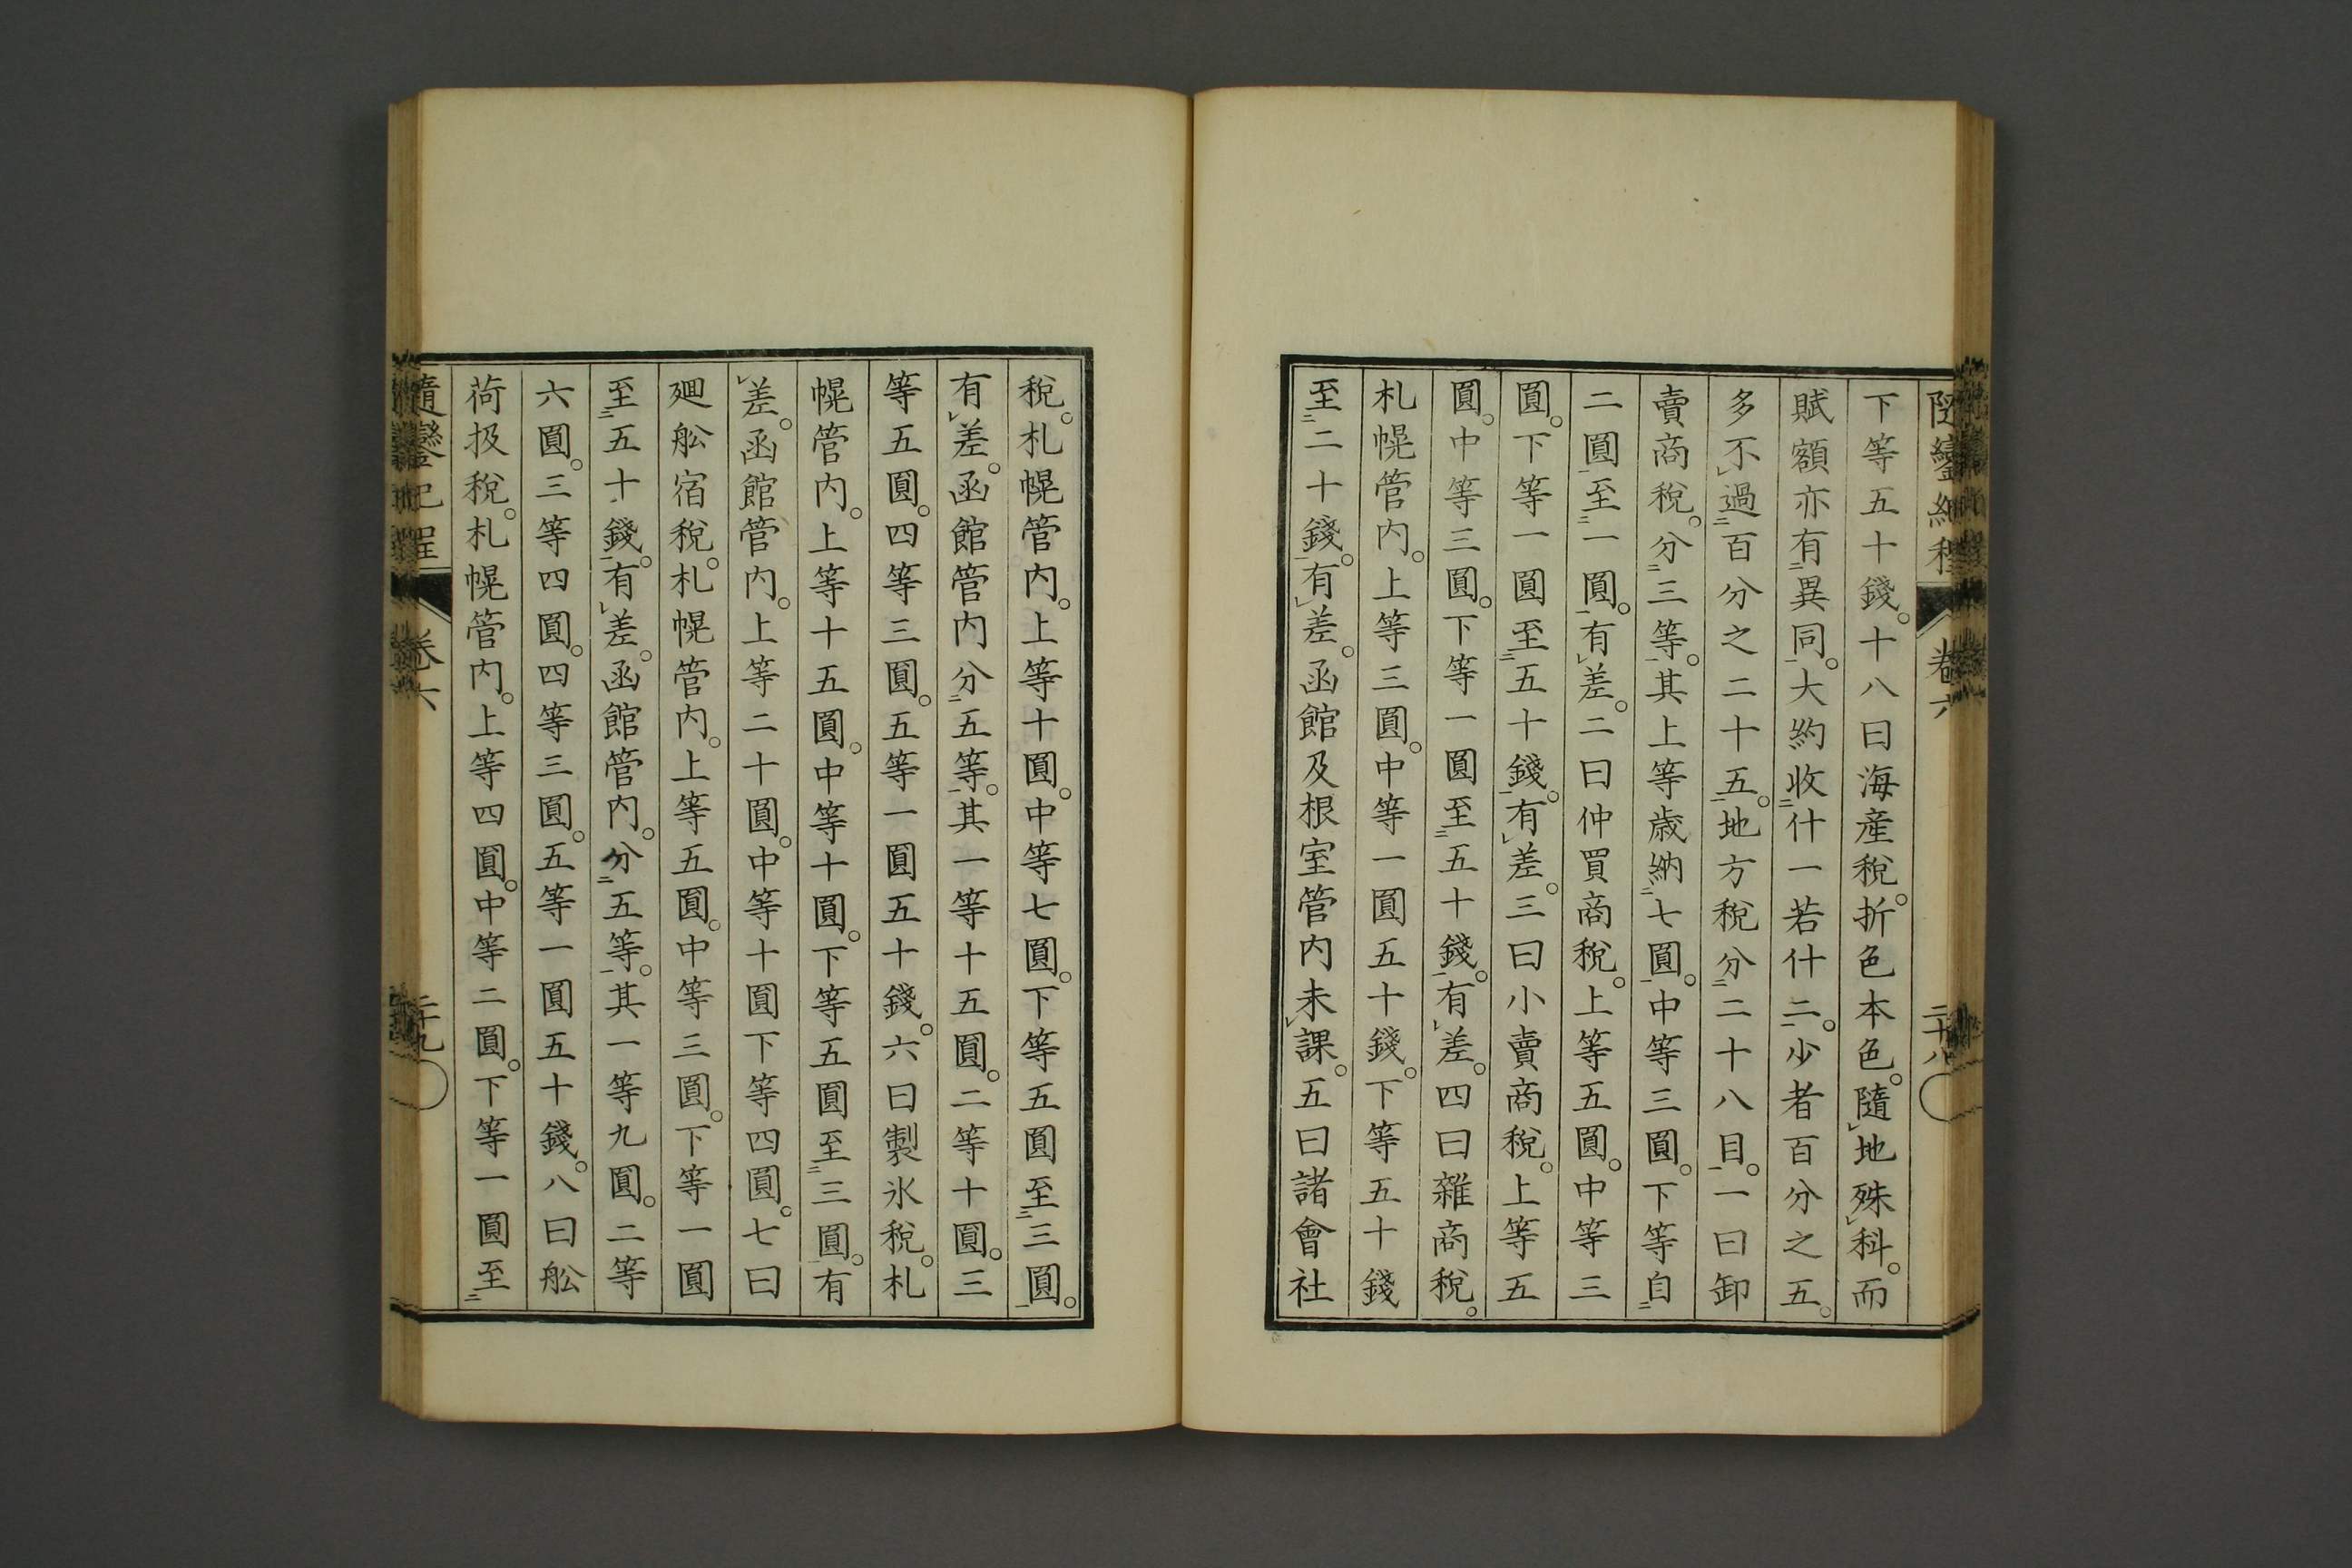 隨鑾紀程 卷六 二十八
下等五十錢。十八曰海産稅。折色本色。隨地殊科。而
賦額亦有異同。大約收什一若什二。少者百分之五。
多不過百分之二十五。地方稅分二十八目。一曰卸
賣商稅。分三等。其上等歲納七圓。中等三圓。下等自
二圓至一圓。有差。二曰仲買商稅。上等五圓。中等三
圓。下等一圓至五十錢。有差。三曰小賣商稅。上等五
圓。中等三圓。下等一圓至五十錢。有差。四曰雜商稅。
札幌管内。上等三圓。中等一圓五十錢。下等五十錢
至二十錢。有差。函館及根室管内未課。五曰諸會社
稅。札幌管内。上等十圓。中等七圓。下等五圓至三圓。
有差。函館管内分五等。其一等十五圓。二等十圓。三
等五圓。四等三圓。五等一圓五十錢。六曰製氷稅。札
幌管内。上等十五圓。中等十圓。下等五圓至三圓。有
差。函館管内。上等二十圓。中等十圓下等四圓。七曰
廻舩宿稅。札幌管内。上等五圓。中等三圓。下等一圓
至五十錢。有差。函館管内。分五等。其一等九圓。二等
六圓。三等四圓。四等三圓。五等一圓五十錢。八曰舩
荷扱稅。札幌管内。上等四圓。中等二圓。下等一圓至
隨鑾紀程 卷六 二十九